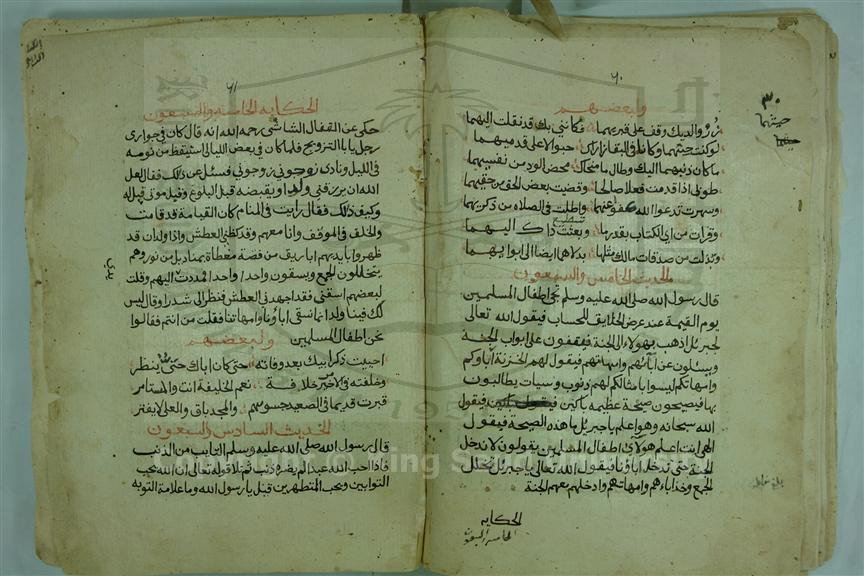 ٦٠
ولبعضهم
زر والديك وقف على قبريهما فكانني بك قد نقلت اليهما
لو كنت حيثهما وكانا في البقا زاراك حبوا لا على قدميهما
ما كان ذنبهما اليك وطال ما منحاك محض الود من نفسيهما
طوبى اذا قدمت فعلا صالحا وقضيت بعض الحق من حقيهما
وسهرت تدعوا الله يعفو عنهما واطلت في الصلاه من ذكريهما
وقرات من اي الكتاب بقدر ما تستطيع وبعثت ذاك اليهما
وبذلت من صدقات مالك مثلما بذلاها ايضا الى ابويهما
الحديث الخامس والسبعون
قال رسول الله صلى الله عليه وسلم تجي اطفال المسلمين
يوم القيمة عند عرض الخلايق للحساب فيقول الله تعالى
لجبرئل اذهب بهولاء الى الجنة فيقفون على ابواب الجنة
ويسئلون عن آبائهم وامهاتهم فيقول لهم الخزنة آباوكم
وامهاتكم ليسوا بامثالكم لهم ذنوب وسيات يطالبون
بها فيصيحون صيحة عظيمه باكين فيقول
الله سبحانه وهو اعلم يا جبرئل ما هذه الصيحة فيقول
الهي انت اعلم هولاي اطفال المسلمين يقولون لا ندخل
الجنة حتى تدخل اباونا فيقول الله تعالى يا جبرئل تخلل
الجمع وخذ اباءهم وامهاتهم وادخلهم معهم الجنة
الحكايه
الخامسه والسبعون
٣٠
حيثهما
٦١
الحكايه الخامسه والسبعون
حكى عن القفال الشاشي رحمه الله انه قال كان في جواري
رجل يابا التزويج فلما كان في بعض الليالي استيقظ من نومه
في الليل ونادى زوجوني زوجوني فسئل عن ذلك فقال لعل
الله ان يرزقني ولدا ويقبضه قبل البلوغ وقبل موتي قيل له
وكيف ذلك فقال رايت في المنام كان القيامة قد قامت
والخلق في الموقف وانا معهم وقد كظني العطش واذا ولدان قد
ظهروا بايديهم اباريق من فضة مغطاة بمناديل من نور وهم
يتخللون الجمع ويسقون واحدا واحدا فمددت اليهم وقلت
لبعضهم اسقني فقد اجهدني العطش فنظر الي شدرا وقال ليس
لك فينا ولد انما نسقي اباونا وامهاتنا فقلت من انتم فقالوا
نحن اطفال المسلمين ولبعضهم
احييت ذكر ابيك بعد وفاته حتى كان اباك حي ينظر
وخلفته في الامر خير خلافة نعم الخليفة انت والمستامر
قبرت قديما في الصعيد جسومهم والمجد باق والعلى لا يقبر
الحديث السادس والسبعون
قال رسول الله صلى الله عليه وسلم التايب من الذنب
فاذا احب الله عبدا لم يضره ذنب ثم تلا قوله تعالى ان الله يحب
التوابين ويحب المتطهرين قيل يا رسول الله وما علامة التوبه
يدي